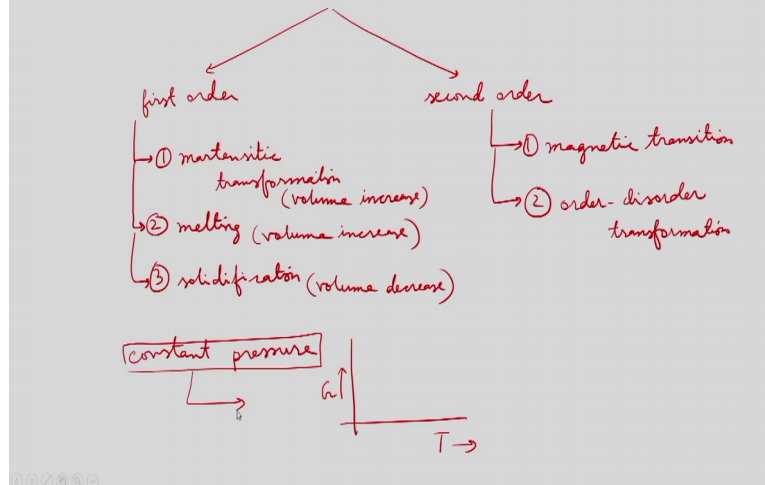 first order
second order
① martensitic
transformation
(volume increase)
② melting (volume increase)
③ solidification (volume decrease)
① magnetic transition
② order-disorder
transformation
constant pressure
G↑
T →